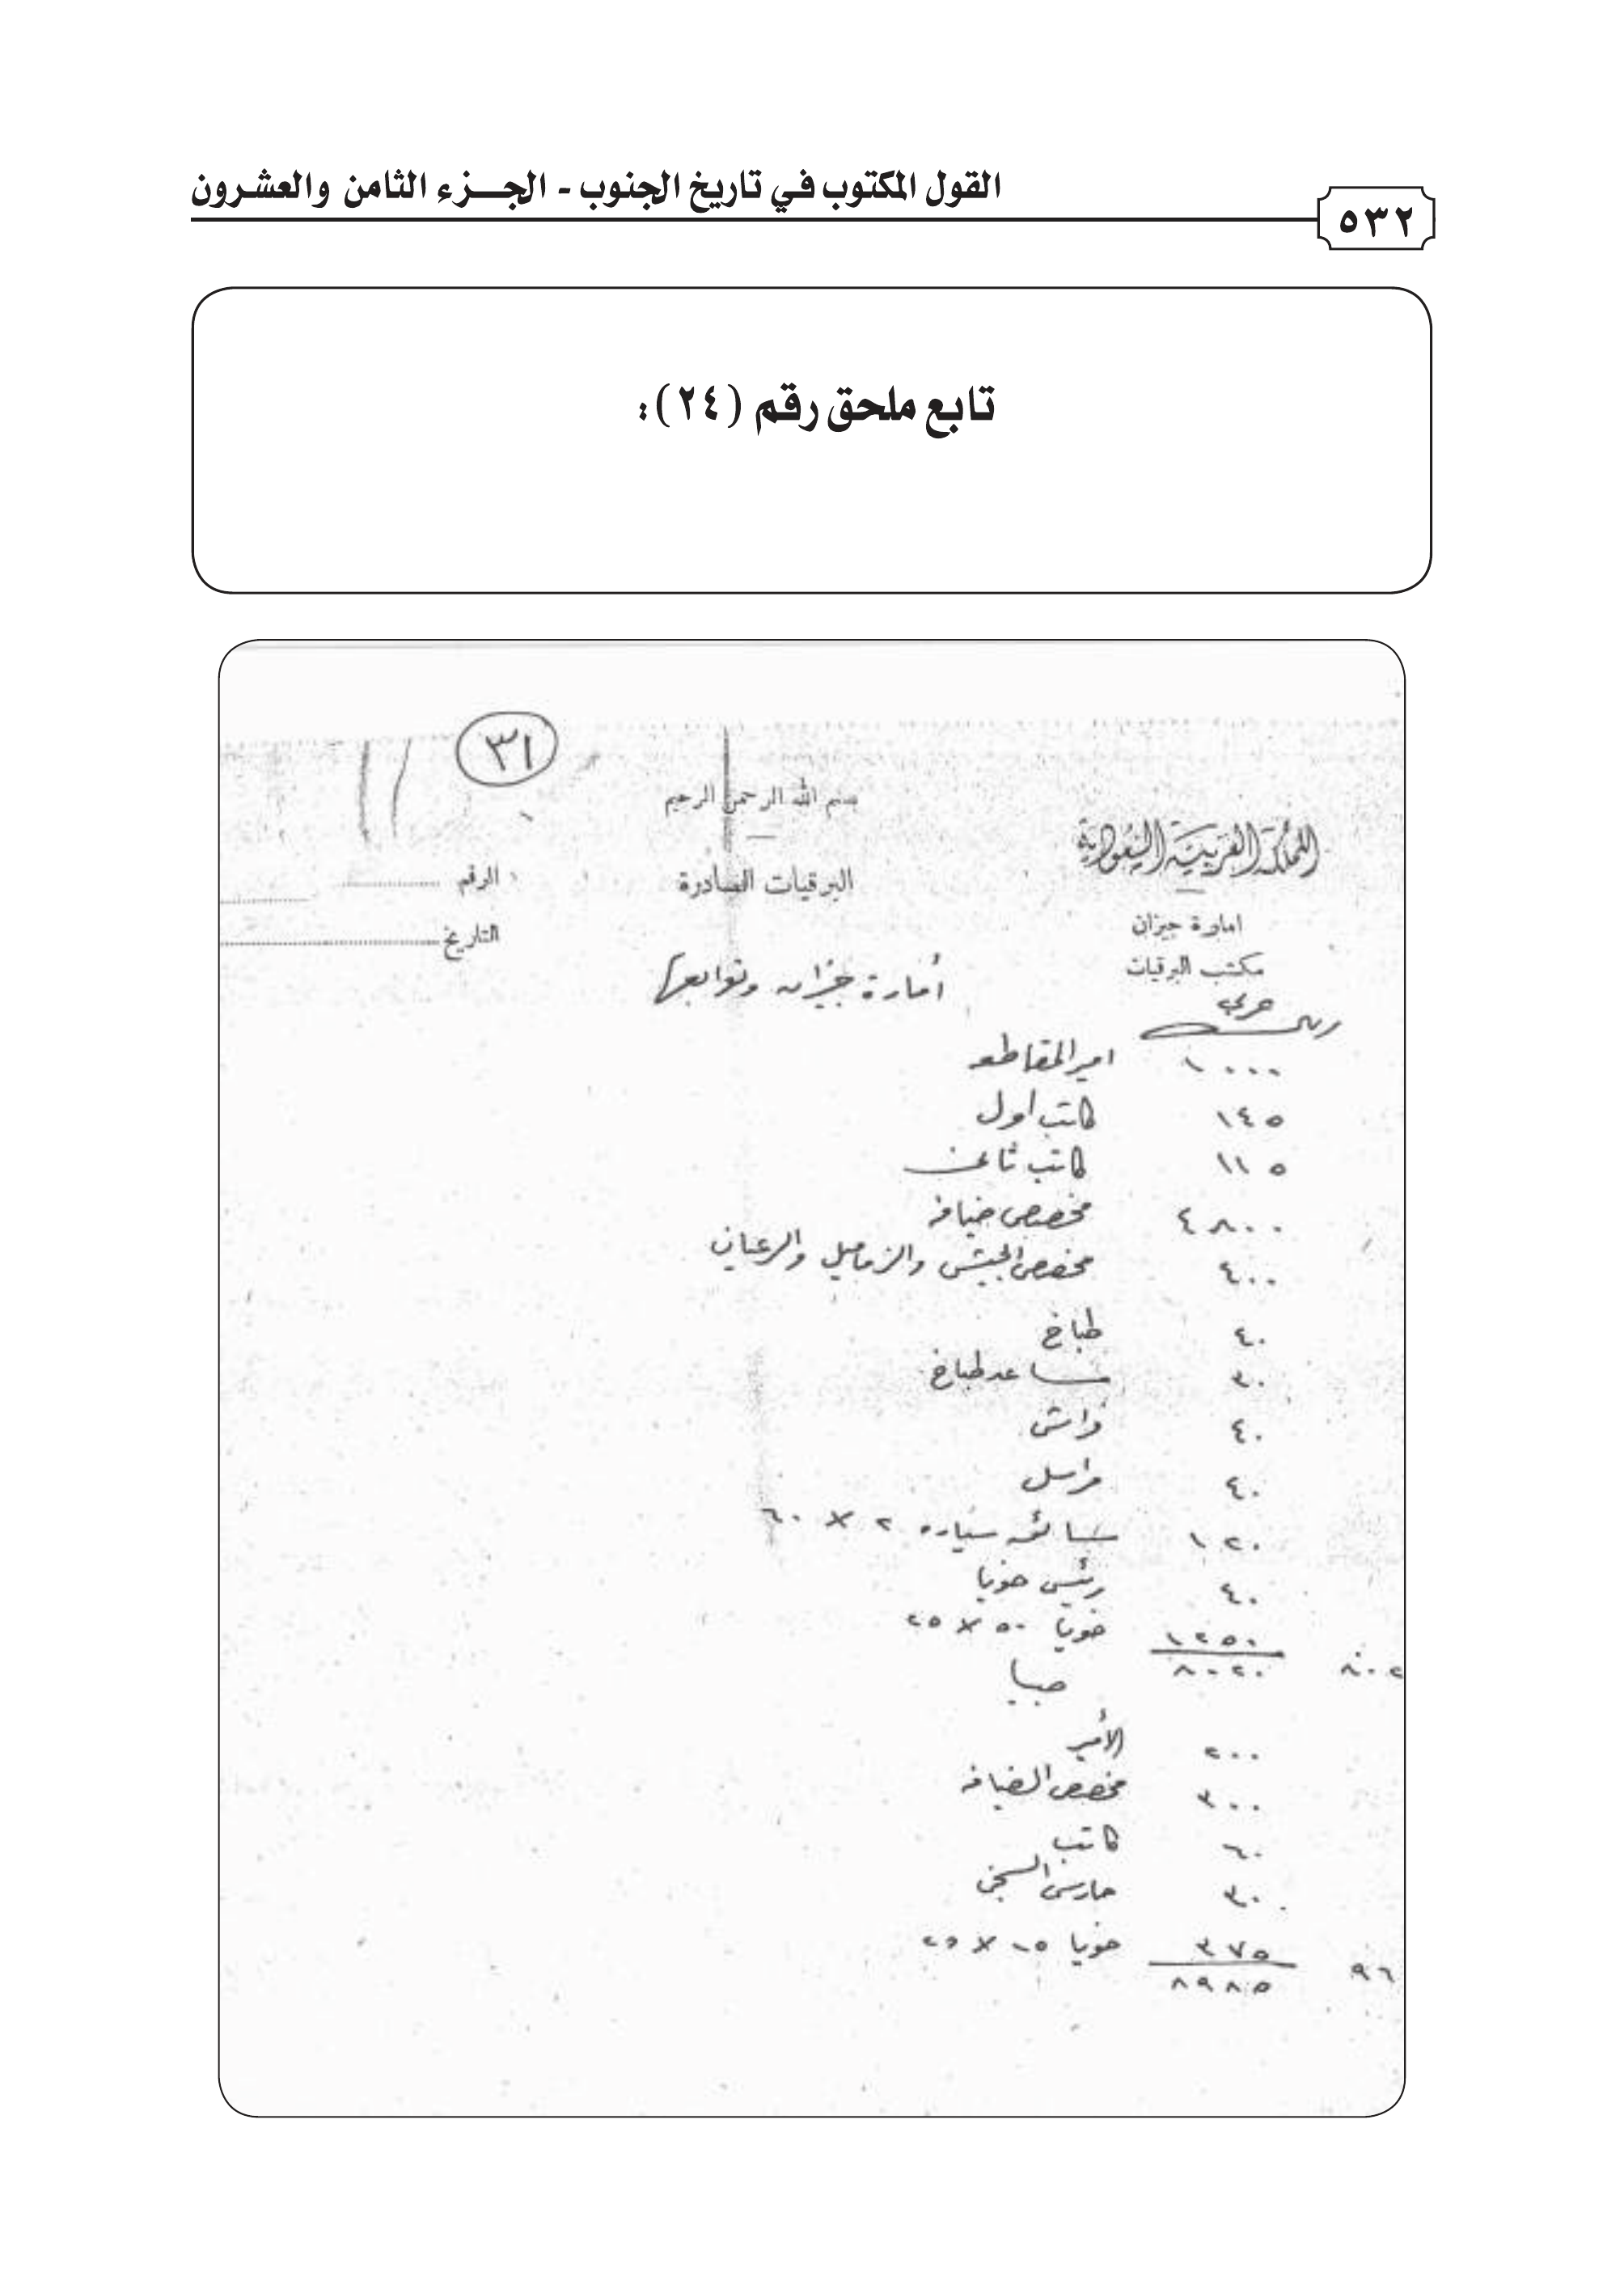 القول المكتوب في تاريخ الجنوب - الجزء الثامن والعشرون
٥٣٢
تابع ملحق رقم (٢٤):
٣١
بسم الله الرحمن الرحيم
المملكة العربية السعودية
البرقيات الصادرة
الرقم
امارة جيزان
التاريخ
مكتب البرقيات
أمارة جيزان وتوابعها
ريال عربي
١٠٠٠ امير المقاطعه
١٤٥ كاتب اول
١١٥ كاتب ثاني
٤٨٠٠ مخصص ضيافه
٤٠٠ مخصص الجيش والزماميل والرعيان
٤٠ طباخ
٣٠ مساعد طباخ
٤٠ فراش
٤٠ مراسل
١٢٠ سائق سياره ٢ × ٦٠
٤٠ رئيس خويا
١٢٥٠ خويا ٥٠ × ٢٥
٨٠٢ ٨٠٢٠
صبيا
٢٠٠ الأمير
٣٠٠ مخصص الضيافه
٦٠ كاتب
٣٠ حارس السجن
٣٧٥ خويا ١٥ × ٢٥
٩٦ ٨٩٨٥